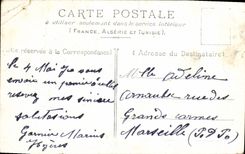 CARTE POSTALE
à utiliser seulement dans le service intérieur
(FRANCE, ALGÉRIE et TUNISIE)
Ce réservé à la Correspondance
Adresse du Destinataire
le 4 Mai Je vous
envoie un
recevez mes sincère
salutations
Garnier Marius
Hyères
Mlle Adeline
rue des
Grands carmes
Marseille